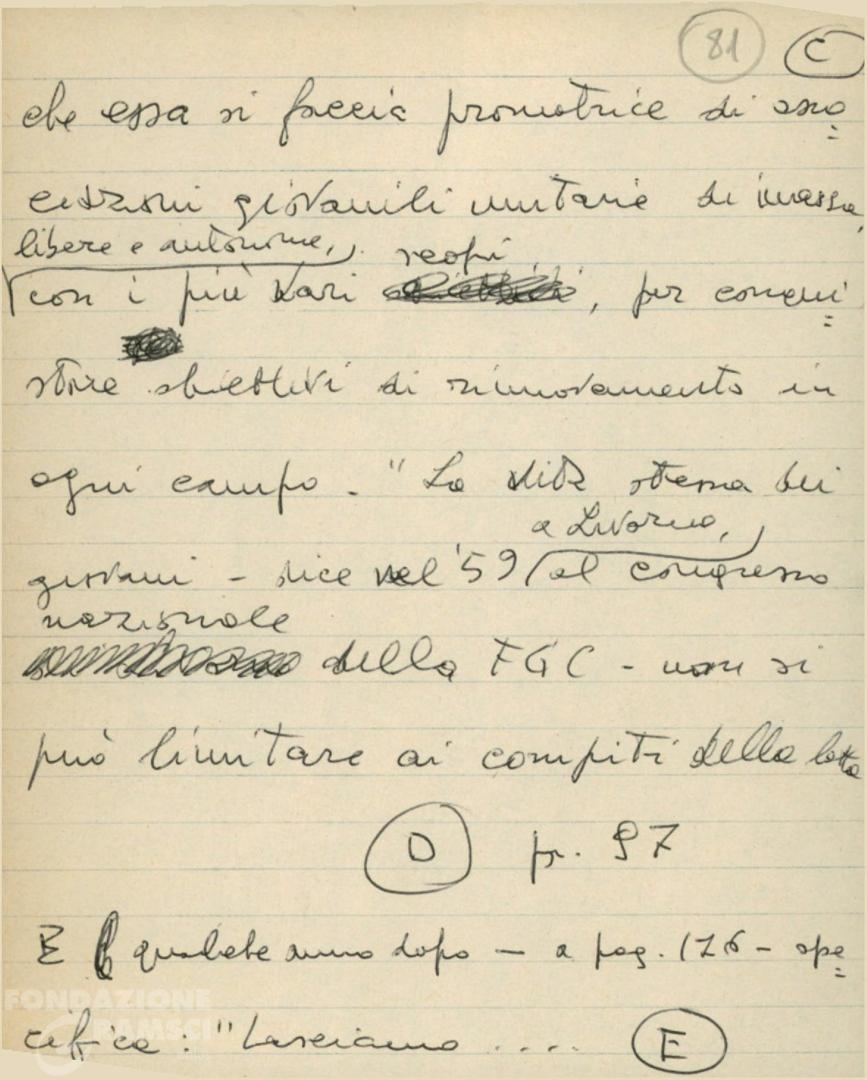 81 C
che essa si faccia promotrice di asso=
ciazioni giovanili unitarie di massa,
libere e autonome, scopi
con i più vari , per conqui=
stare obiettivi di rinnovamento in
ogni campo. "La vita stessa dei
a Livorno,
giovani - dice nel '59 al congresso
nazionale
della FGC - non si
può limitare ai compiti della lotta
D p. 97
E qualche anno dopo - a pag. 176 - spe=
cifica: "Lasciamo .... E
FONDAZIONE
GRAMSCI